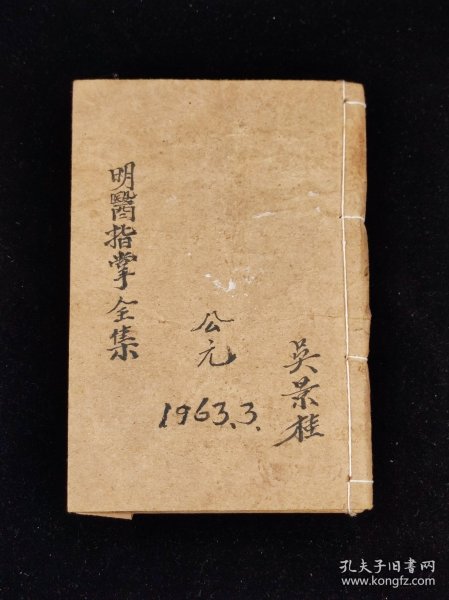 明醫指掌全集
公元
1963.3.
吳景桂
孔夫子旧书网
www.kongfz.com